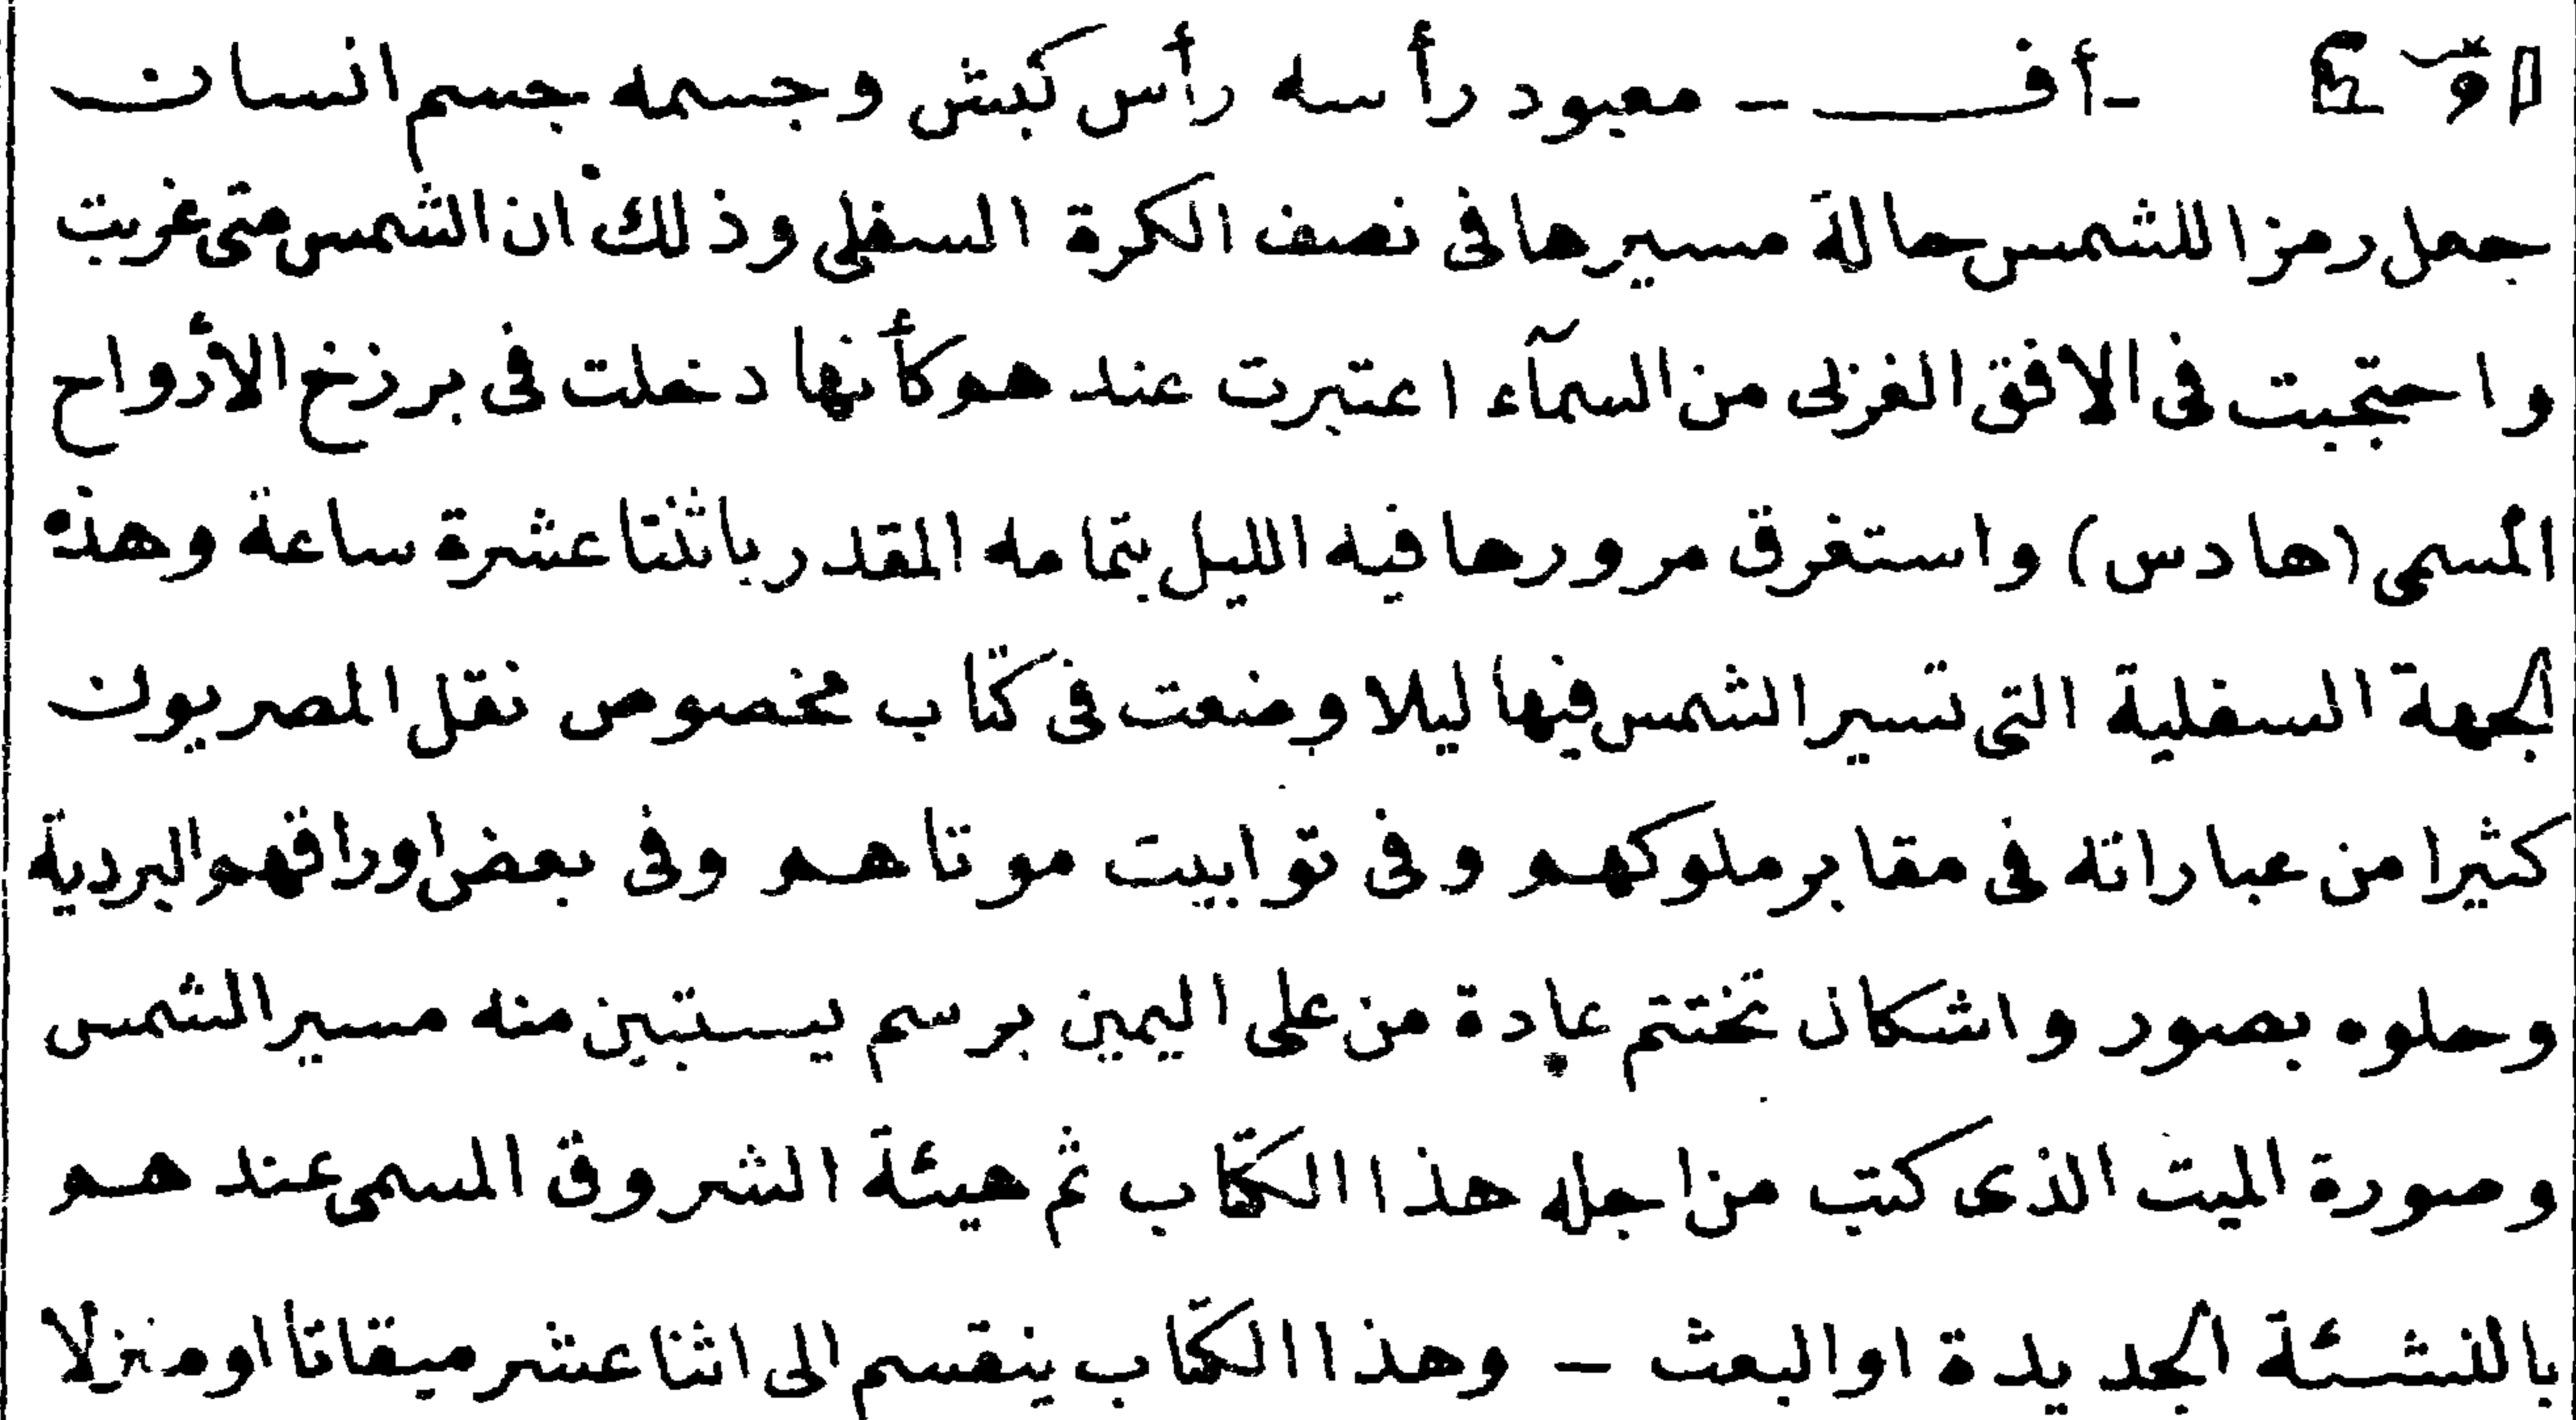 -أف- معبود رأسه رأس كبش وجسمه جسم انسان
جعل رمزا للشمس حالة مسيرها فى نصف الكرة السفلى وذلك ان الشمس متى غربت
واحتجبت فى الافق الغربى من السمآء اعتبرت عندهو كأنها دخلت فى برزخ الأرواح
المسمى (هادس) واستغرق مرورها فيه الليل بتمامه المقدر باثنتا عشرة ساعة وهذه
الجهة السفلية التى تسير الشمس فيها ليلا وضعت فى كتاب مخصوص نقل المصريون
كثيرا من عباراته فى مقابر ملوكهم وفى توابيت موتاهم وفى بعض اوراقهم البردية
وحلوه بصور واشكال تختتم عادة من على اليمين برسم يستبين منه مسير الشمس
وصورة الميت الذى كتب من اجله هذا الكتاب ثم هيئة الشروق المسمى عندهم
بالنشئة الجديدة او البعث - وهذا الكتاب ينقسم الى اثنا عشر ميقاتا او منزلا